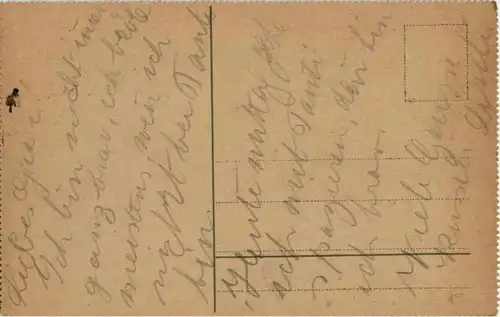 Liebes Opi!
Ich bin nicht immer
ganz brav, ich bin
meistens, wen ich
nicht bei Tante
bin.
Heute nachm. geh
ich mit Tanti
spazieren, dan bin
ich brav.
Viele Grüsse